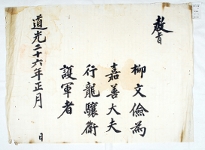 敎旨
柳文儉爲
嘉善大夫
行龍驤衛
護軍者
道光二十六年正月 日